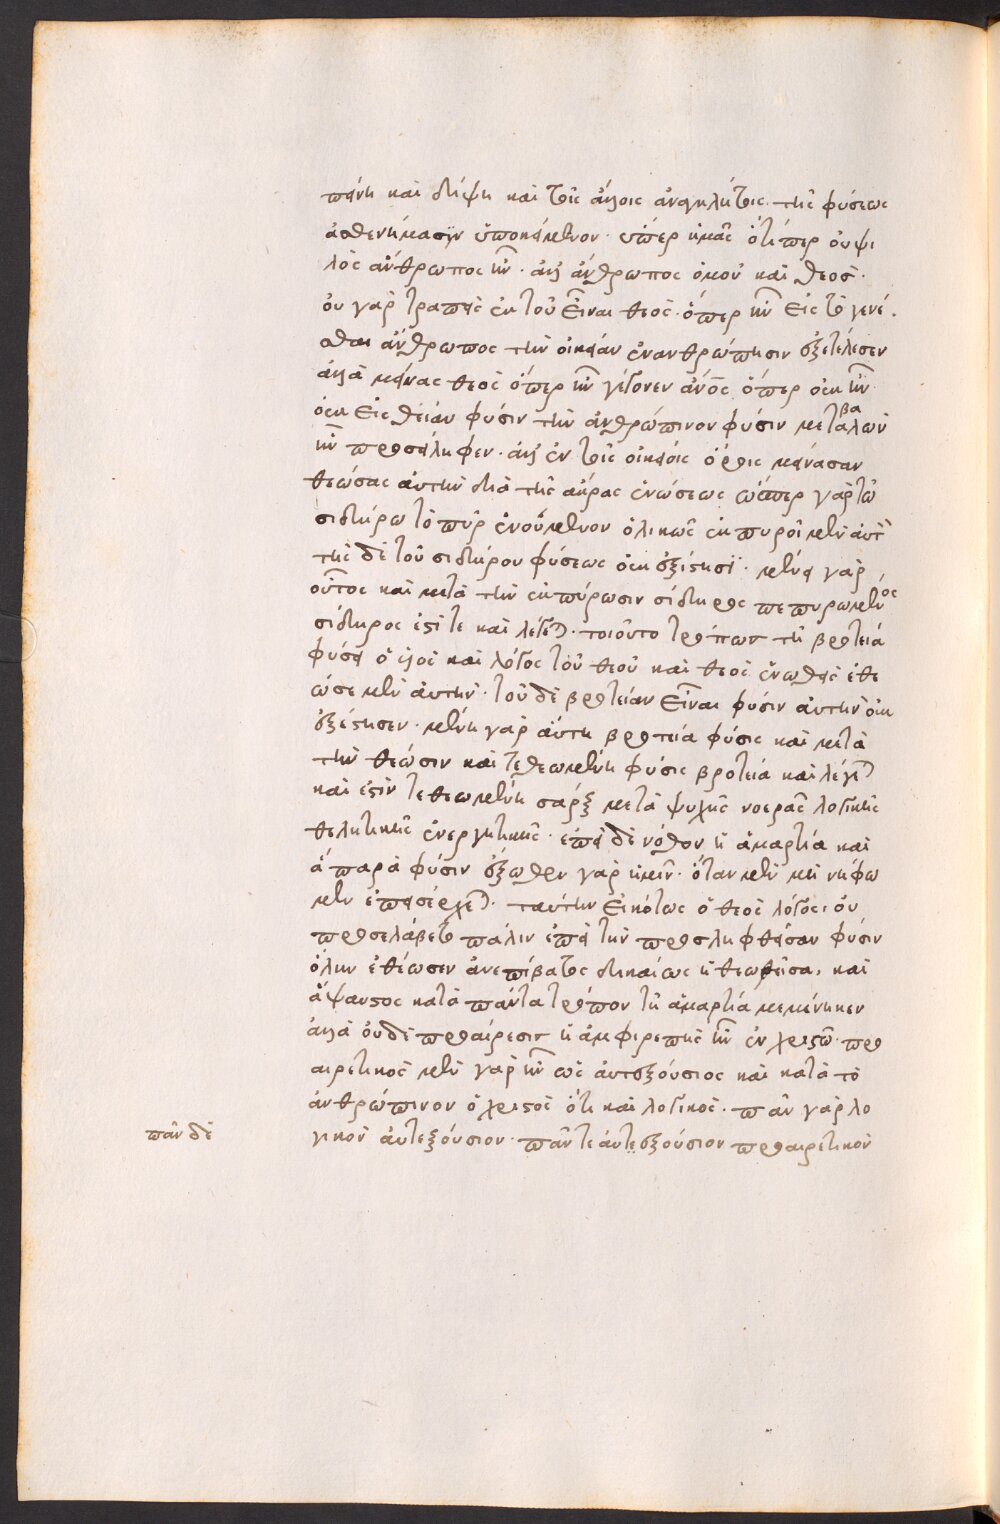 πείνη καὶ δίψη καὶ τοῖς ἄλλοις ἀνεγκλήτοις τῆς φύσεως
ἀσθενήμασιν ὑποκείμενον· ὑπὲρ ἡμᾶς ὅτι περ οὐ ψι
λὸς ἄνθρωπος ἦν· ἀλλ' ἄνθρωπος ὁμοῦ καὶ θεός·
οὐ γὰρ τραπεὶς ἐκ τοῦ εἶναι θεὸς· ὅπερ ἦν εἰς τὸ γενέ
σθαι ἄνθρωπος τὴν οἰκείαν ἐνανθρώπησιν ἐξετέλεσεν
ἀλλὰ μείνας θεὸς ὅπερ ἦν γέγονεν ἄνος ὅπερ οὐκ ἦν·
οὐκ εἰς θείαν φύσιν τὴν ἀνθρώπινον φύσιν μεταβαλὼν
ἦν προσείληφεν· ἀλλ' ἐν τοῖς οἰκείοις ὅροις μείνασαν
θεώσας αὐτὴν διὰ τῆς ἄκρας ἑνώσεως ὥσπερ γὰρ τῶ
σιδήρω τὸ πῦρ ἑνούμενον ὁλικῶς ἐκπυροῖ μὲν αὐτὸν
τῆς δὲ τοῦ σιδήρου φύσεως οὐκ ἐξίστησϊ· μένει γὰρ
οὗτος καὶ μετὰ τὴν ἐκπύρωσιν σίδηρος πεπυρωμένος
σίδηρος ἐστί τε καὶ λέγεται· τοιοῦτο τρόπων τῆ βροτεία
φύσει ὁ υἱὸς καὶ λόγος τοῦ θεοῦ καὶ θεὸς ἑνωθεὶς ἐθέ
ωσε μὲν αὐτὴν· τοῦ δὲ βροτείαν εἶναι φύσιν αὐτὴν οὐκ
ἐξέστησεν· μένη γὰρ αὕτη βροτεία φύσις καὶ μετὰ
τὴν θέωσιν καὶ τεθεωμένη φύσις βροτεία καὶ λέγεται
καὶ ἐστὶν τεθεωμένη σάρξ μετὰ ψυχῆς νοερᾶς λογικῆς
θελητικῆς ἐνεργητικῆς· ἐπεὶ δὲ νόθον ἡ ἁμαρτία καὶ
ἁ παρὰ φύσιν ἔξωθεν γὰρ ἡμῖν· ὅταν μὲν μὴ νήφω
μεν ἐπεισέρχεται· ταύτην εἰκότως ὁ θεὸς λόγος, οὐ
προσελάβετο πάλιν ἐπεὶ τὴν προσληφθεῖσαν φύσιν
ὅλην ἐθέωσεν ἀνεπίβατος δικαίως ἡ θεωθεῖσα, καὶ
ἄψαυστος κατὰ πάντα τρόπον τῆ ἁμαρτία μεμένηκεν
ἀλλὰ οὐδὲ προαίρεσις ἡ ἀμφιρεπὴς ἦν ἐν χριστῶ· προ
αιρετικὸς μὲν γὰρ ἦν ὡς αὐτεξούσιος καὶ κατὰ τὸ
ἀνθρώπινον ὁ χριστὸς ὅτι καὶ λογικὸς· πᾶν γὰρ λο
γικὸν αὐτεξούσιον· πᾶν τε αὐτεξούσιον προαιρετικὸν
πᾶν δὲ